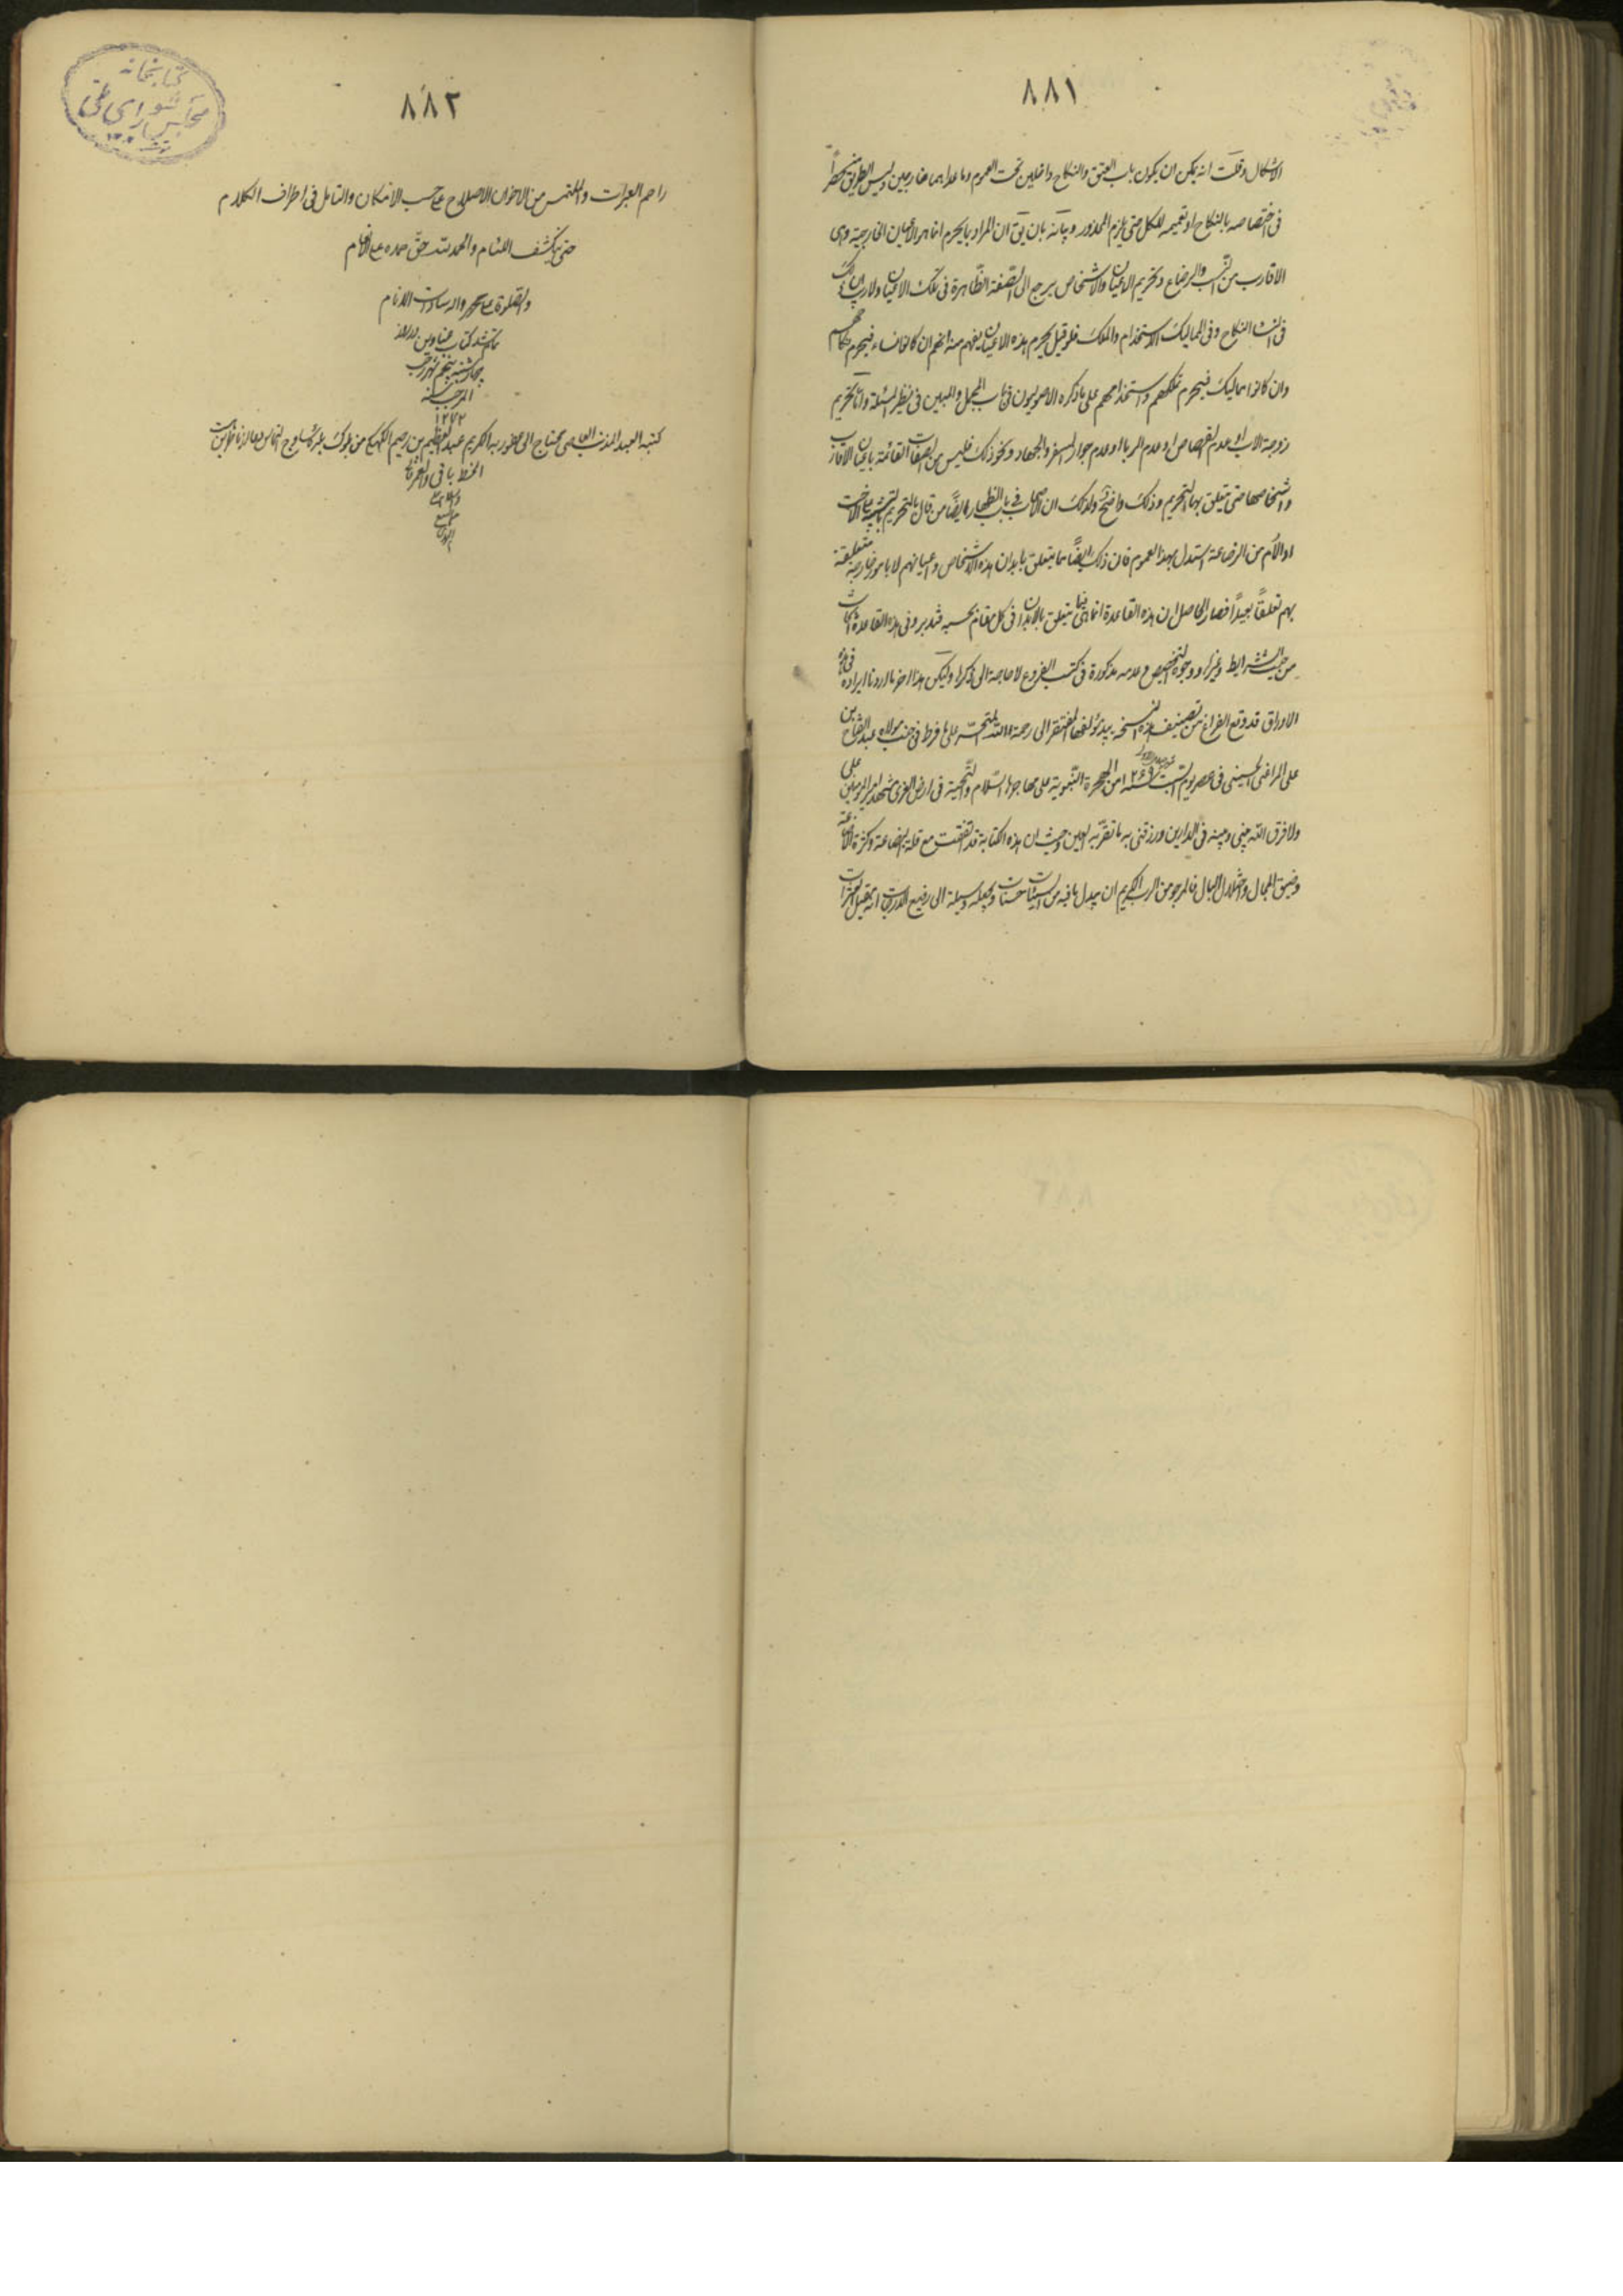 ٨٨١
الاشكال وقلت انه يمكن ان يكون باب العتق والنكاح داخلين تحت العموم وما عداهما خارجين وليس الطريق منحصراً
فى اختصاصه بالنكاح او تعميمه للكل حتى يلزم المحذور وبيانه بان يق ان المراد بما يحرم انما هو الاعيان الخارجية وهى
الاقارب من النسب والرضاع وتحريم الاعيان والاشخاص يرجع الى الصفة الظاهرة فى تلك الاعيان ولا ريب ان ذلك
فى النساء النكاح وفى المماليك الاستخدام والملك فلو قيل يحرم هذه الاعيان يفهم منه انهم ان كانوا نساء فيحرم نكاحهم
وان كانوا مماليك فيحرم تملكهم واستخدامهم على ما ذكره الاصوليون فى باب المجمل والمبين فى نظير المسئلة واما تحريم
زوجة الاب او عدم القصاص او عدم الربا او عدم جواز السفر والجهاد ونحو ذلك فليس من الصفات القائمة باعيان الاقارب
واشخاصها حتى يتعلق بها التحريم وذلك واضح ولذلك ان الاصحاب فى باب الظهار ايضاً من قال بالتحريم بالتشبيه بالاخت
او الام من الرضاعة استدل بهذا العموم فان ذلك ايضاً مما يتعلق بابدان هذه الاشخاص واعيانهم لا بامور خارجة متعلقة
بهم تعلقاً بعيداً فصار الحاصل ان هذه القاعدة انما هى فيما يتعلق بالابدان فى كل مقام بحسبه فتدبر وفى هذه القاعدة ابحاث
من حيث الشرايط وغيرها ووجوه التخصيص وعدمه مذكورة فى كتب الفروع لا حاجة الى ذكرها وليكن هذا اخر ما اردنا ايراده فى هذه
الاوراق قد وقع الفراغ من تصنيف هذه النسخة بيد مؤلفها المفتقر الى رحمة الله المتحسر على ما فرط فى جنب مولاه عبد الفتاح بن
على المراغى الحسينى فى عصر يوم السبت سنة ١٢٤٦ من الهجرة النبوية على مهاجرها السلام والتحية فى ارض الغرى مشهد امير المؤمنين على
ولا فرق الله بينى وبينه فى الدارين ورزقنى به ما تقر به العين وحيث ان هذه الكتابة قد اتفقت مع قلة البضاعة وكثرة الاضاعة
وضيق المجال واختلال البال فالمرجو من الرب الكريم ان يبدل ما فيه من السيئات حسنات ويجعله وسيلة الى رفيع الدرجات انه مقيل العثرات
٨٨٢
راحم العبرات والملتمس من الاخوان الاصلاح على حسب الامكان والتامل فى اطراف الكلام
حتى ينكشف اللثام والحمد لله حق حمده على الانعام
والصلوة على محمد واله سادات الانام
تمام شد كتاب عناوين در روز
چهارشنبه پنجم شهر رجب
المرجب سنه
١٢٧٢
كتبه العبد المذنب العاصى محتاج الى عفو ربه الكريم عبد العظيم بن رحيم
الخط باقى والعمر فانى
كتابخانه
مجلس شوراى ملى